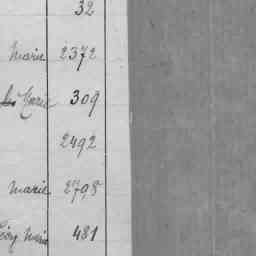 32
Marie 2372
Marie 309
2492
Marie 2798
Marie 481